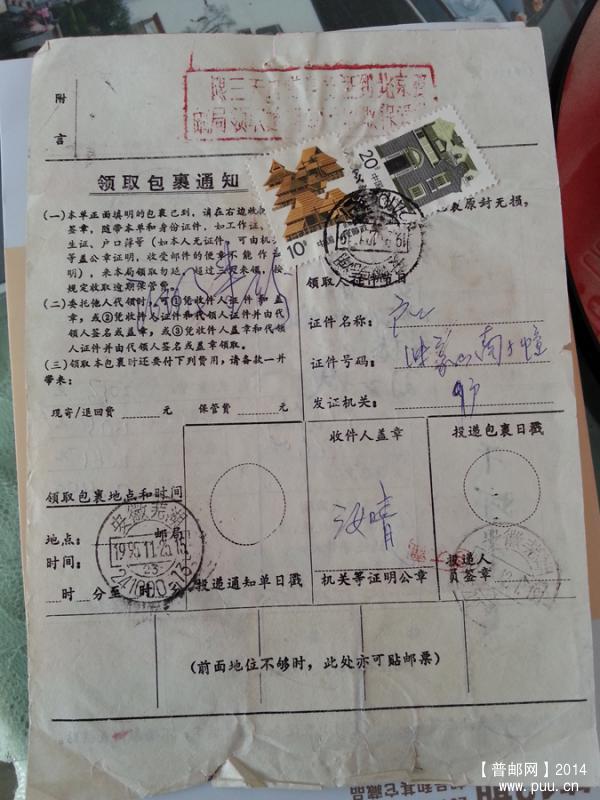 附
言
领取包裹通知
20
中国
10分
中国
(一)本单正面填明的包裹已到，请在右边收
签章，随带本单和身份证件，如工作证、
生证、户口簿等(如本人无证件，可由机
等盖公章证明，收受邮件的便章不能作证
明)，来本局领取勿延。超过三天来领，按
规定收取逾期保管费。
(二)委托他人代领时，可①凭收件人证件和盖
章，或②凭收件人证件和代领人证件并由代
领人签名或盖章，或③凭收件人盖章和代领
人证件并由代领人签名或盖章领取。
(三)领取本包裹时还要付下列费用，请备款一并
带来：
现寄/退回费 元 保管费 元
原封无损，
领取人证件节目
证件名称：
证件号码：
发证机关：
领取包裹地点和时间
地点： 邮局
时间：
时 分至 时 分
安徽芜湖
1995.11.25.15
241000
投递通知单日戳
收件人盖章
海晴
机关等证明公章
投递包裹日戳
投递人
员签章
(前面地位不够时，此处亦可贴邮票)
【普邮网】2014
www.puu.cn